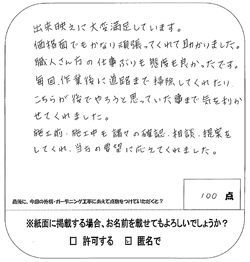 出来映えに大変満足しています。
価格面でもかなり頑張ってくれて助かりました。
職人さん方の仕事ぶりも態度も良かったです。
毎回、作業後に道路まで掃除してくれたり、
こちらが後でやろうと思っていた事まで気を利か
せてくれました。
施工前・施工中も諸々の確認、相談、提案を
してくれ、当方の要望に応えてくれました。
最後に、今回の外構・ガーデニング工事にあえて点数をつけていただくと？
100 点
※紙面に掲載する場合、お名前を載せてもよろしいでしょうか？
□ 許可する ☑ 匿名で